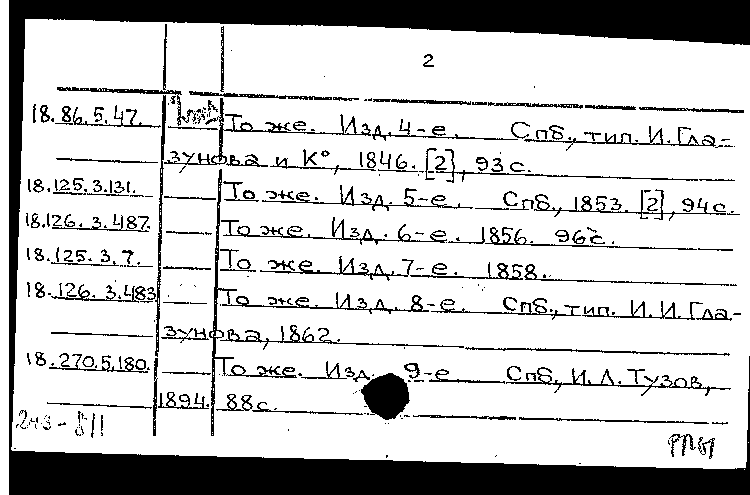 2
18.86.5.47. То же. Изд. 4-е. Спб., тип. И. Гла-
зунова и К°, 1846. [2], 93 с.
18.125.3.131. То же. Изд. 5-е. Спб., 1853. [2], 94 с.
18.126.3.487. То же. Изд. 6-е. 1856. 96 с.
18.125.3.7. То же. Изд. 7-е. 1858.
18.126.3.483 То же. Изд. 8-е. Спб., тип. И. И. Гла-
зунова, 1862.
18.270.5.180. То же. Изд. 9-е Спб., И. Л. Тузов,
1894. 88 с.
243-811